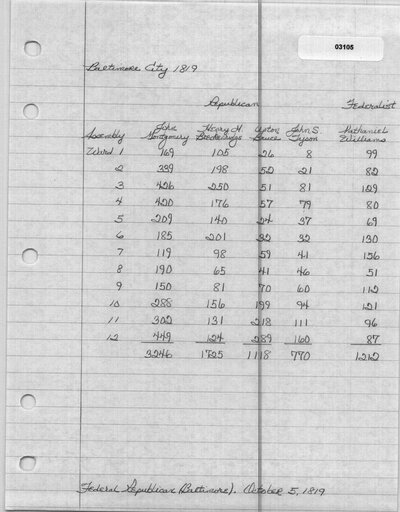 03105
Baltimore City 1819
Republican Federalist
John Henry M. Upton John S. Nathaniel
Assembly Montgomery Brackenridge Bruce Tyson Williams
Ward 1 169 105 26 8 99
2 339 198 52 21 82
3 426 250 51 81 129
4 420 176 57 79 80
5 209 140 24 37 69
6 185 201 32 32 130
7 119 98 59 41 156
8 190 65 41 46 51
9 150 81 70 60 112
10 288 156 199 94 121
11 302 131 218 111 96
12 449 124 289 160 87
3246 1725 1118 770 1212
Federal Republican (Baltimore). October 5, 1819